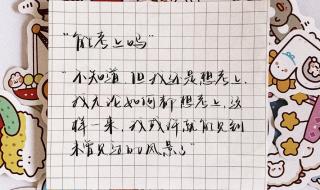 “能考上吗”
“不知道 但我还是想考上,
我无论如何都想考上,这
样一来,我或许就能见到
未曾见过的风景了”